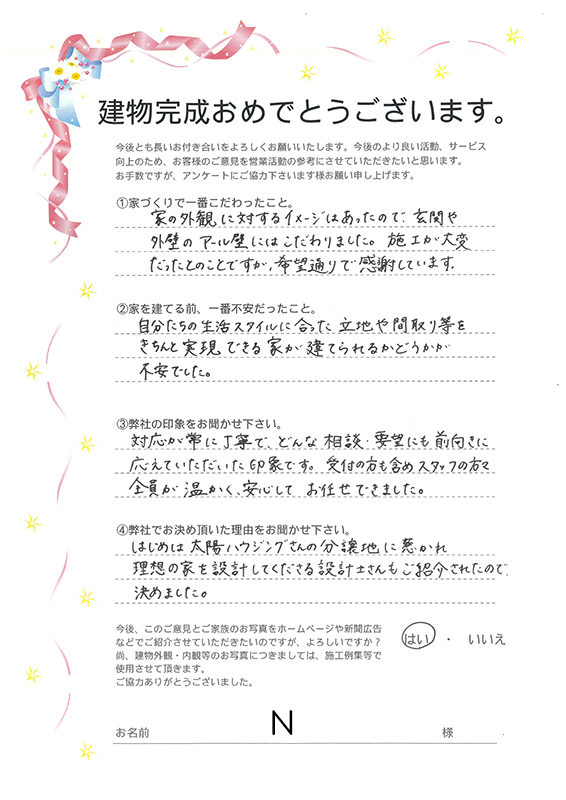 建物完成おめでとうございます。
今後とも長いお付き合いをよろしくお願いいたします。今後のより良い活動、サービス
向上のため、お客様のご意見を営業活動の参考にさせていただきたいと思います。
お手数ですが、アンケートにご協力下さいます様お願い申し上げます。
①家づくりで一番こだわったこと。
家の外観に対するイメージはあったので、玄関や
外壁のアール壁にはこだわりました。施工が大変
だったとのことですが、希望通りで感謝しています。
②家を建てる前、一番不安だったこと。
自分たちの生活スタイルに合った立地や間取り等を
きちんと実現できる家が建てられるかどうかが
不安でした。
③弊社の印象をお聞かせ下さい。
対応が常に丁寧で、どんな相談・要望にも前向きに
応えていただいた印象です。受付の方も含めスタッフの方々
全員が温かく、安心してお任せできました。
④弊社でお決め頂いた理由をお聞かせ下さい。
はじめは太陽ハウジングさんの分譲地に惹かれ
理想の家を設計してくださる設計士さんもご紹介されたので、
決めました。
今後、このご意見とご家族のお写真をホームページや新聞広告
などでご紹介させていただきたいのですが、よろしいですか？
はい ・ いいえ
尚、建物外観・内観等のお写真につきましては、施工例集等で
使用させて頂きます。
ご協力ありがとうございました。
お名前 N 様